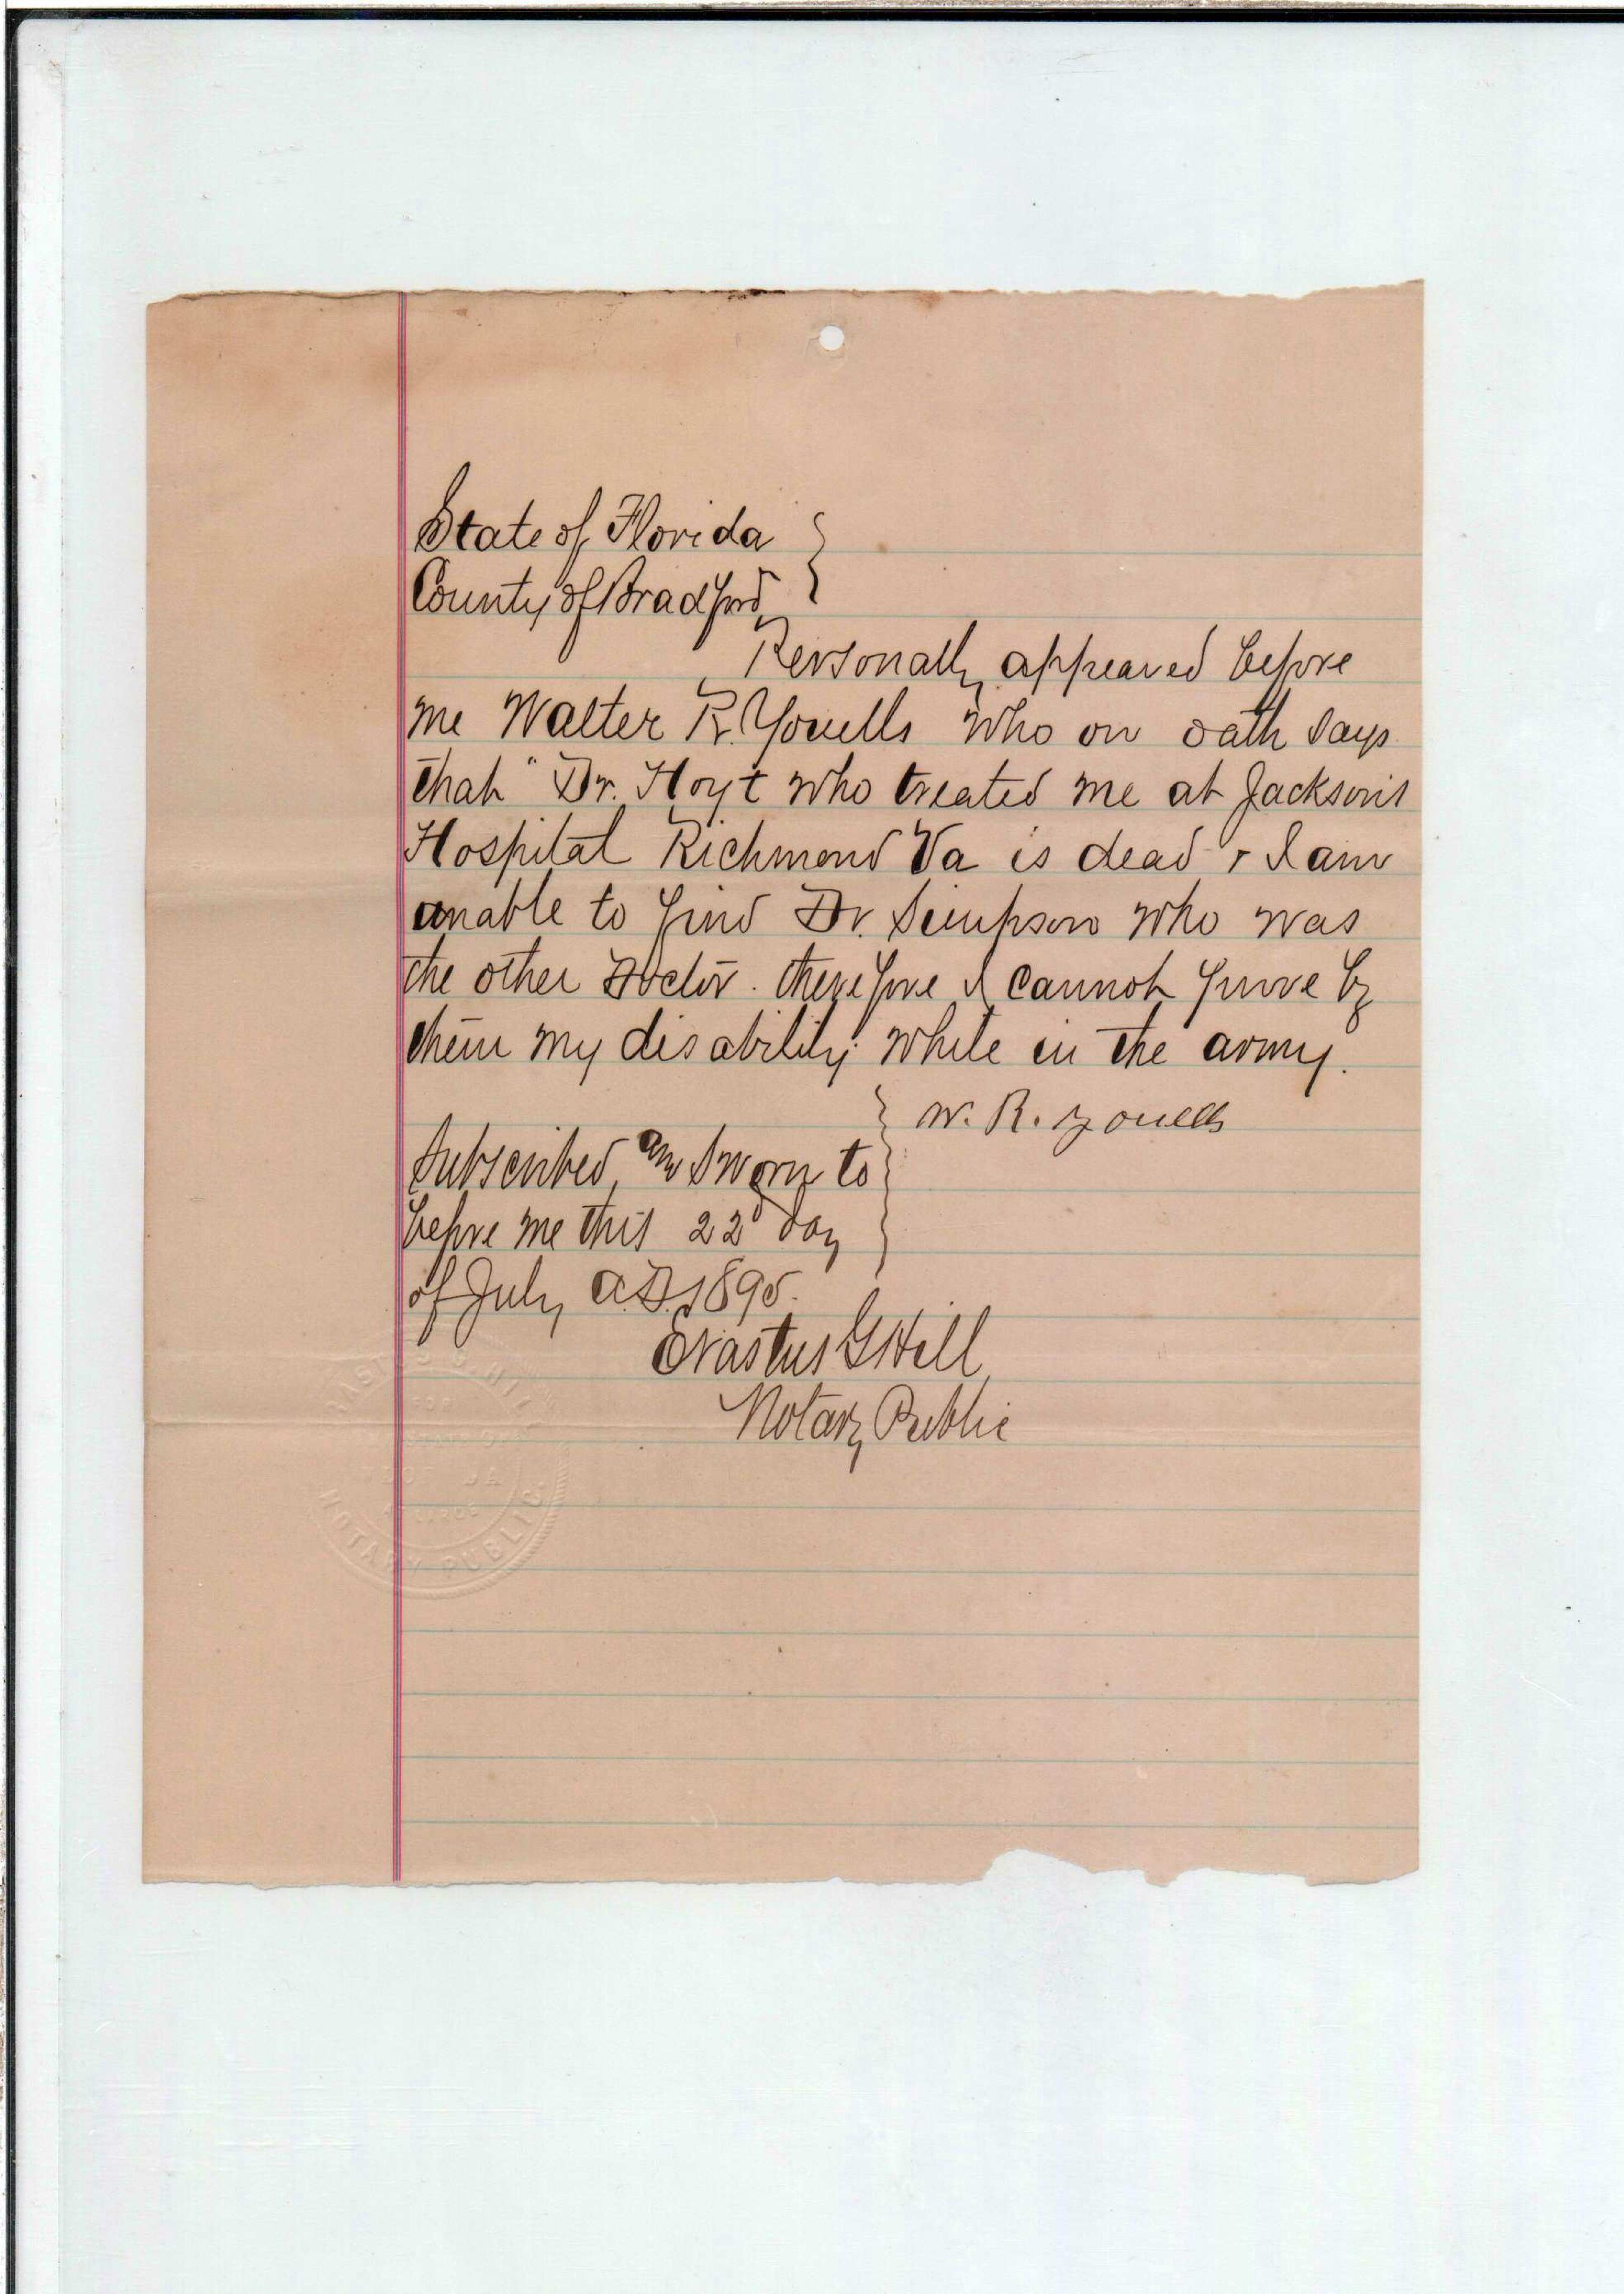 State of Florida }
County of Bradford }
Personally appeared before
me Walter R. Youells who on oath says
that " Dr. Hoyt who treated me at Jackson's
Hospital Richmond Va is dead & I am
unable to find Dr. Simpson who was
the other Doctor. therefore I cannot prove by
them my disability while in the army.
W. R. Youells
Subscribed and Sworn to
before me this 22d day
of July A.D. 1895.
Erastus G Hill
Notary Public
NOTARY PUBLIC